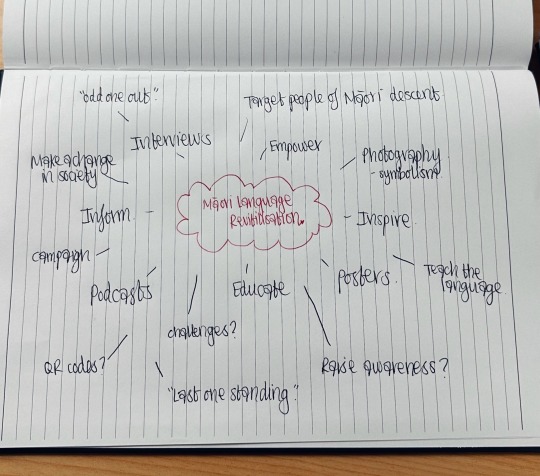 "odd one out"
Target people of Māori descent
Interviews
Empower
Photography
- symbolism
Make a change
in society
Māori Language
Revitilisation.
Inform
Inspire
campaign
Podcasts
Educate
Posters.
Teach the
language
challenges?
QR codes?
Raise awareness?
"Last one standing"